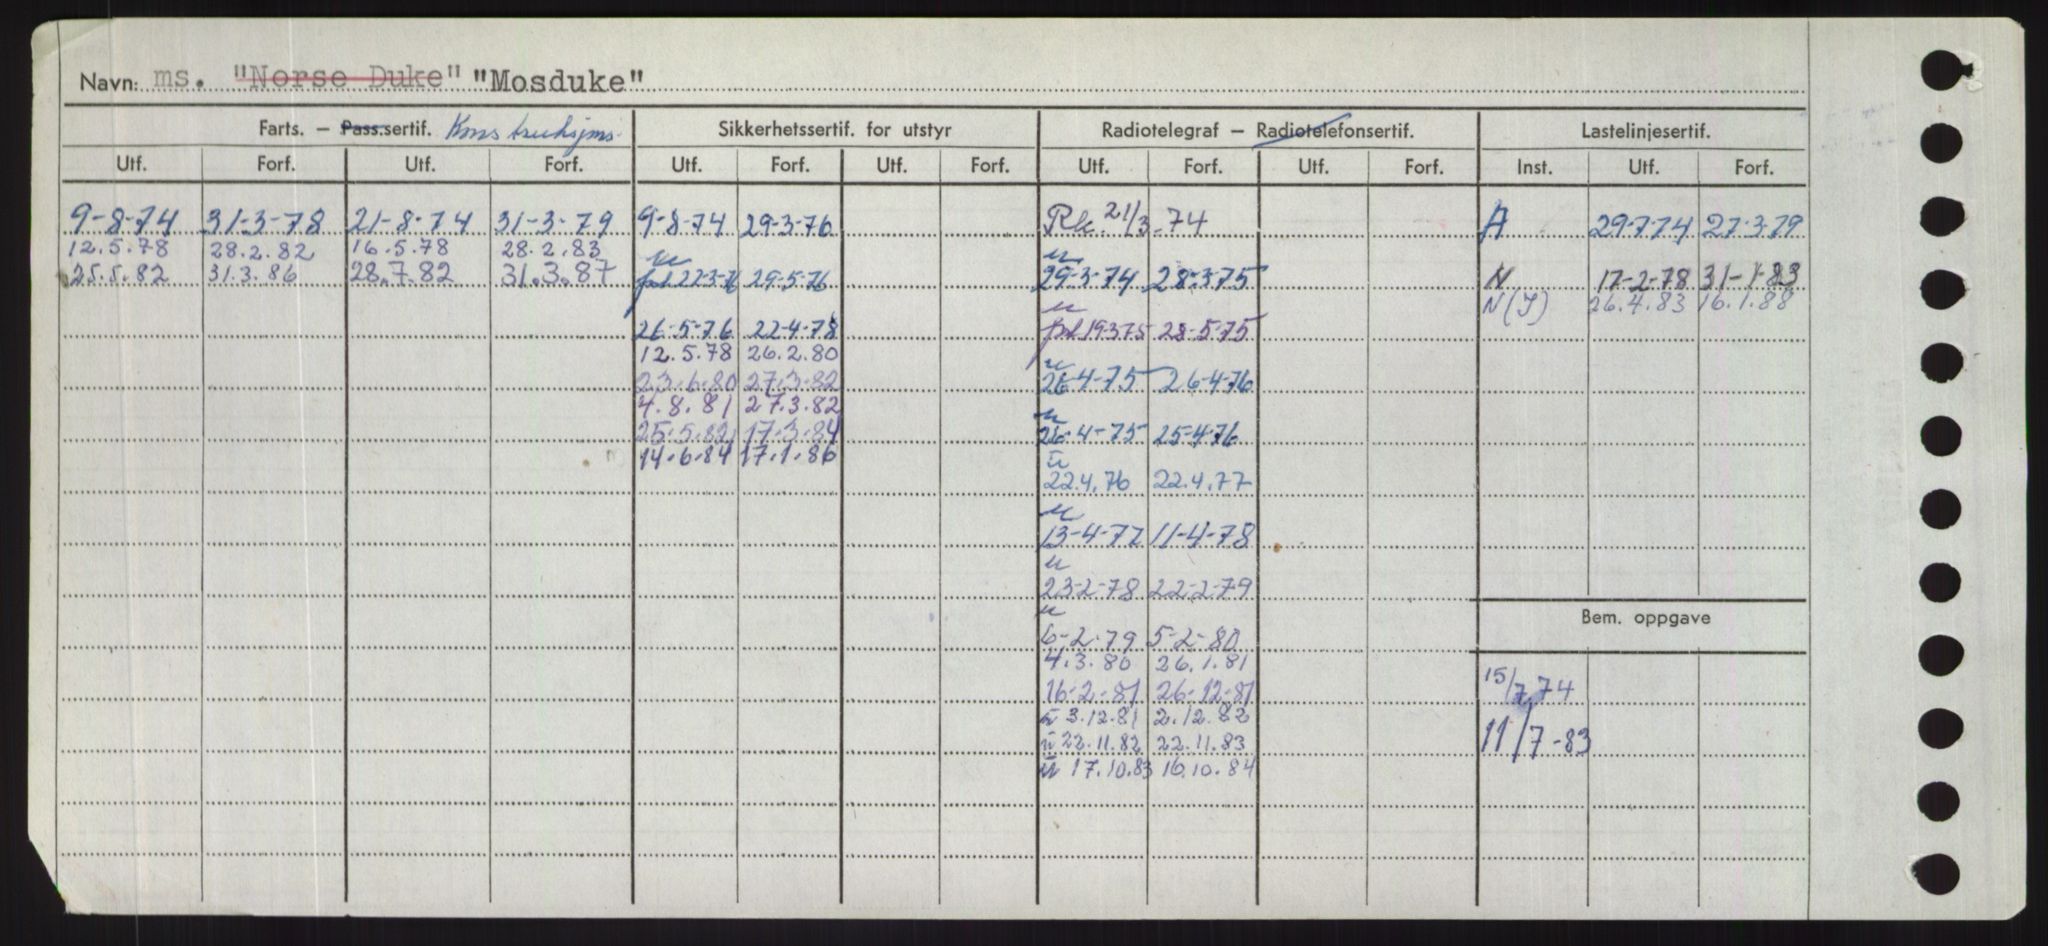 Navn: ms. "Norse Duke" "Mosduke"
Farts. – Pass.sertif. Konstruksjons. Sikkerhetssertif. for utstyr Radiotelegraf – Radiotelefonsertif. Lastelinjesertif.
Utf. Forf. Utf. Forf. Utf. Forf. Utf. Forf. Utf. Forf. Utf. Forf. Inst. Utf. Forf.
9-8-74 31-3-78 21-8-74 31-3-79 9-8-74 29-3-76 21/3.74 A 29-7-74 27-3-79
12.5.78 28.2.82 16.5.78 28.2.83
25.5.82 31.3.86 28.7.82 31.3.87 22-3-76 29-5-76 29-3-74 28-3-75 N 17-2-78 31-1-83
N(I) 26.4.83 16.1.88
26-5-76 22-4-78 19-3-75 28-5-75
12.5.78 26.2.80
23.6.80 27.3.82 26-4-75 26-4-76
4.8.81 27.3.82
25.5.82 17.3.84 26-4-75 25-4-76
14.6.84 17.1.86
22.4.76 22.4.77
13-4-77 11-4-78
23-2-78 22-2-79
Bem. oppgave
6-2-79 5-2-80
4.3.80 26.1.81
16-2-81 26-12-81 15/7 74
3.12.81 2.12.82
22.11.82 22.11.83 11/7-83
17.10.83 16.10.84